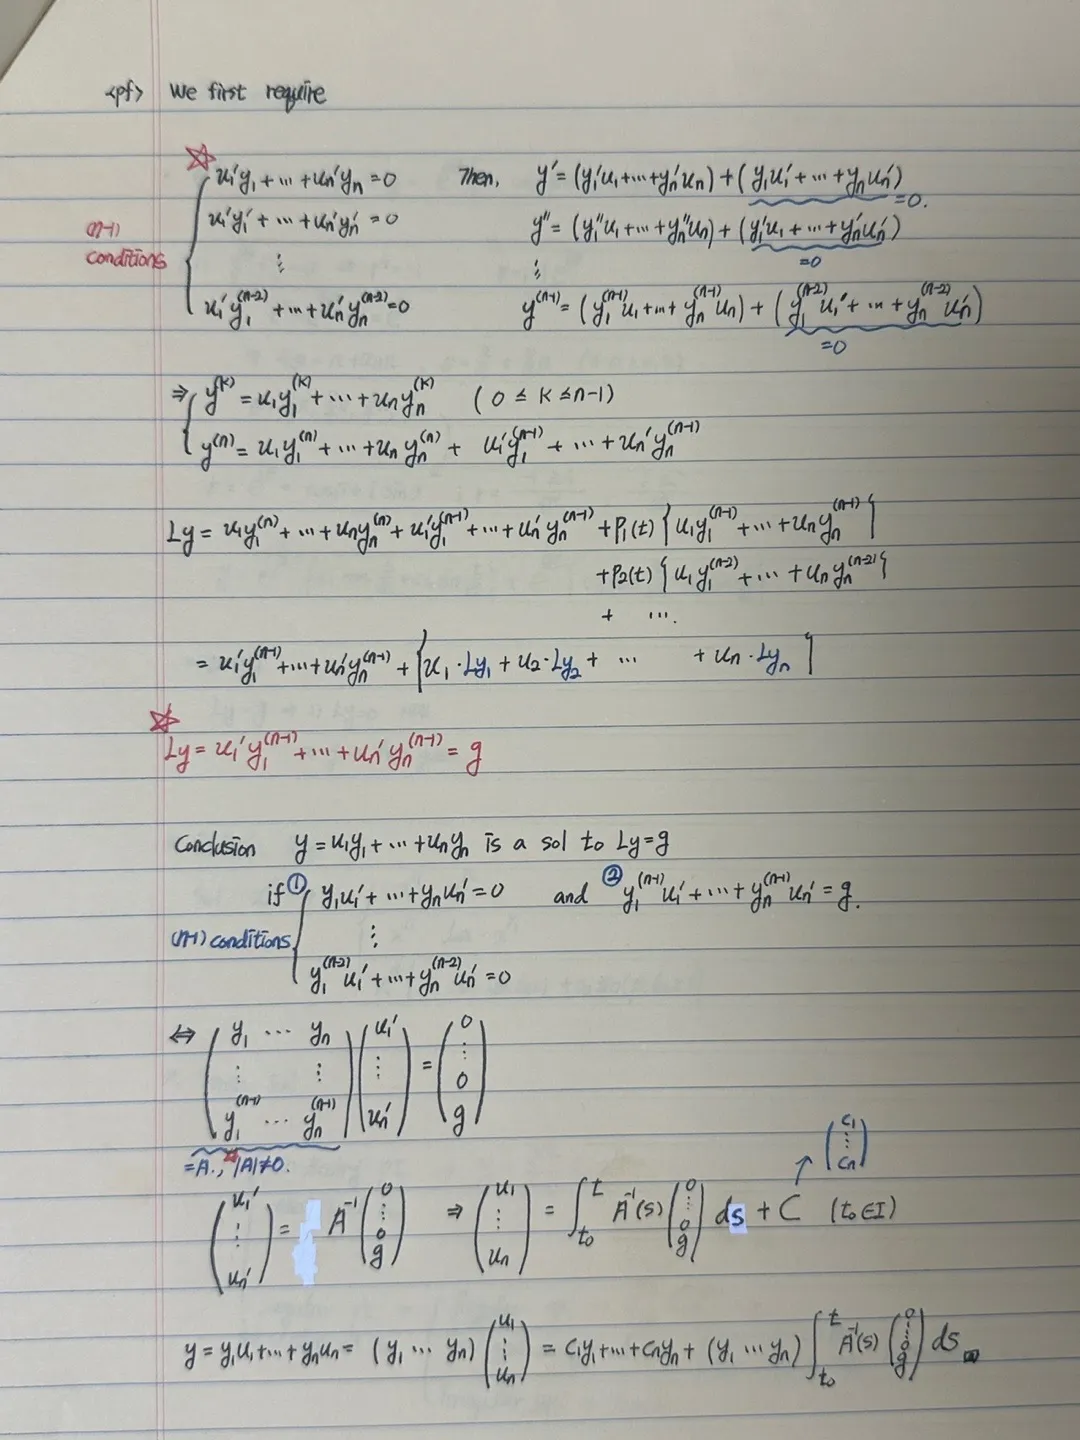 <pf> We first require
☆
u₁'y₁ + ... + uₙ'yₙ = 0 Then, y' = (y₁'u₁ + ... + yₙ'uₙ) + (y₁u₁' + ... + yₙuₙ')
= 0.
(n-1) conditions
u₁'y₁' + ... + uₙ'yₙ' = 0 y'' = (y₁''u₁ + ... + yₙ''uₙ) + (y₁'u₁ + ... + yₙ'uₙ')
= 0
⋮ ⋮
u₁'y₁^(n-2) + ... + uₙ'yₙ^(n-2) = 0 y^(n-1) = (y₁^(n-1)u₁ + ... + yₙ^(n-1)uₙ) + (y₁^(n-2)u₁' + ... + yₙ^(n-2)uₙ')
= 0
⇒ { y^(k) = u₁y₁^(k) + ... + uₙyₙ^(k) (0 ≤ k ≤ n-1)
y^(n) = u₁y₁^(n) + ... + uₙyₙ^(n) + u₁'y₁^(n-1) + ... + uₙ'yₙ^(n-1)
Ly = u₁y₁^(n) + ... + uₙyₙ^(n) + u₁'y₁^(n-1) + ... + uₙ'yₙ^(n-1) + P₁(t) { u₁y₁^(n-1) + ... + uₙyₙ^(n-1) }
+ P₂(t) { u₁y₁^(n-2) + ... + uₙyₙ^(n-2) }
+ ....
= u₁'y₁^(n-1) + ... + uₙ'yₙ^(n-1) + { u₁·Ly₁ + u₂·Ly₂ + ... + uₙ·Lyₙ }
☆
Ly = u₁'y₁^(n-1) + ... + uₙ'yₙ^(n-1) = g
Conclusion y = u₁y₁ + ... + uₙyₙ is a sol to Ly = g
if ① { y₁u₁' + ... + yₙuₙ' = 0 and ② y₁^(n-1)u₁' + ... + yₙ^(n-1)uₙ' = g.
(n-1) conditions ⋮
y₁^(n-2)u₁' + ... + yₙ^(n-2)uₙ' = 0
⇔ ( y₁ ... yₙ ) ( u₁' ) = ( 0 )
( ⋮ ⋮ ) ( ⋮ ) ( ⋮ 0 )
( y₁^(n-1) ... yₙ^(n-1) ) ( uₙ' ) ( g )
= A., ☆ |A| ≠ 0.
( u₁' ⋮ uₙ' ) = A⁻¹ ( 0 ⋮ 0 g ) ⇒ ( u₁ ⋮ uₙ ) = ∫_{t₀}^{t} A⁻¹(s) ( 0 ⋮ 0 g ) ds + C (t₀ ∈ I) ↗ ( c₁ ⋮ cₙ )
y = y₁u₁ + ... + yₙuₙ = (y₁ ... yₙ) ( u₁ ⋮ uₙ ) = c₁y₁ + ... + cₙyₙ + (y₁ ... yₙ) ∫_{t₀}^{t} A⁻¹(s) ( 0 ⋮ 0 g ) ds